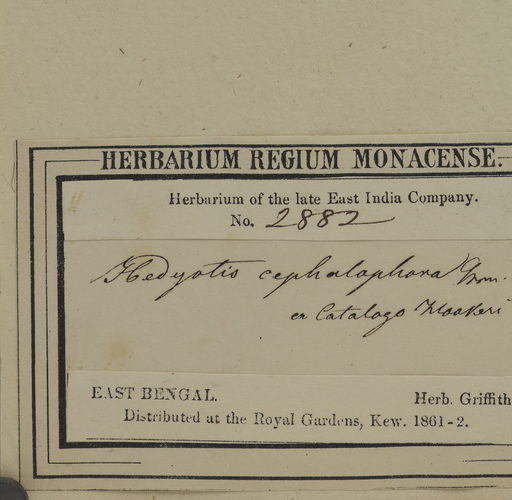 HERBARIUM REGIUM MONACENSE.
Herbarium of the late East India Company.
No. 2882
Hedyotis cephalophora
ex Catalogo Hookeri
EAST BENGAL. Herb. Griffith
Distributed at the Royal Gardens, Kew. 1861-2.